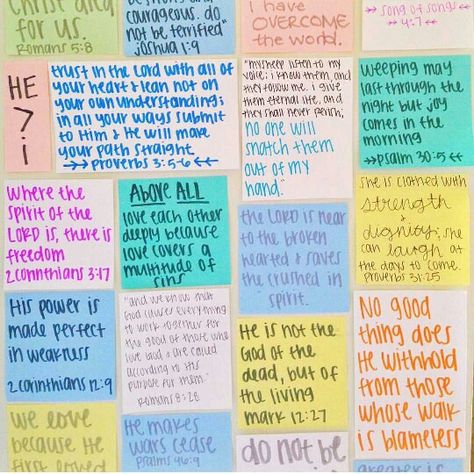 Christ died
for us.
Romans 5:8
courageous. do
not be terrified"
Joshua 1:9
I have
OVERCOME
the world.
song of song!
4:7
HE
>
i
trust in the Lord with all of
your heart & lean not on
your own understanding;
in all your ways submit
to Him & He will make
your path straight.
Proverbs 3:5-6
"my sheep listen to my
voice; i know them, and
they follow me. I give
them eternal life, and
they shall never perish;
no one will
snatch them
out of my
hand."
Weeping may
last through the
night but joy
comes in the
morning
Psalm 30:5
Where the
spirit of the
LORD is, there is
freedom
2 corinthians 3:17
Above ALL
love each other
deeply because
love covers a
multitude of
sins
the LORD is near
to the broken
hearted & saves
the crushed in
spirit.
She is clothed with
strength
&
dignity; she
can laugh at
the days to come.
Proverbs 31:25
His power is
made perfect
in weakness
2 corinthians 12:9
"and we know that
God causes everything
to work together for
the good of those who
love God & are called
according to His
purpose for them."
Romans 8:28
He is not the
God of the
dead, but of
the living
mark 12:27
NO good
thing does
He withhold
from those
whose walk
is blameless
we love
because He
first loved
He makes
wars cease
Psalms 46:9
do not be
greater is